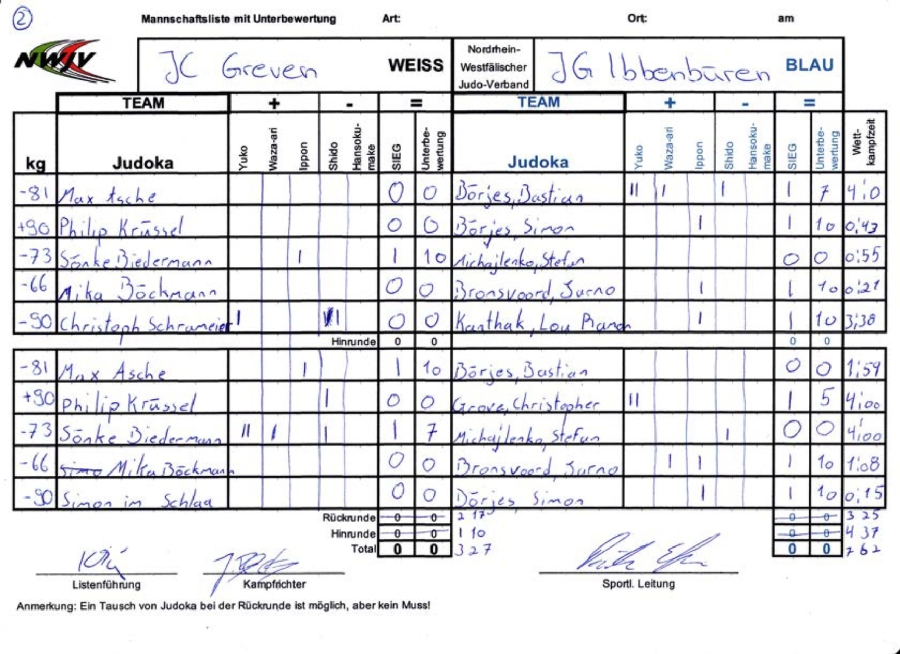 2 Mannschaftsliste mit Unterbewertung Art: Ort: am
NWJV JC Greven WEISS Nordrhein-Westfälischer Judo-Verband JG Ibbenbüren BLAU
TEAM + - = TEAM + - =
kg Judoka Yuko Waza-ari Ippon Shido Hansoku-make SIEG Unterbe-wertung Judoka Yuko Waza-ari Ippon Shido Hansoku-make SIEG Unterbe-wertung Wett-kampfzeit
-81 Max Asche 0 0 Börjes, Bastian II I I 1 7 4:0
+90 Philip Krüssel 0 0 Börjes, Simon I 1 10 0:43
-73 Sönke Biedermann I 1 10 Michajlenko, Stefan 0 0 0:55
-66 Mika Böckmann 0 0 Bronsvoord, Jarno I 1 10 0:21
-90 Christoph Schrameier I 0 0 Kanthak, Lou I 1 10 3:38
Hinrunde 0 0 0 0
-81 Max Asche I 1 10 Börjes, Bastian 0 0 1:59
+90 Philip Krüssel I 0 0 Grove, Christopher II 1 5 4:00
-73 Sönke Biedermann II I I 1 7 Michajlenko, Stefan I 0 0 4:00
-66 Simo Mika Böckmann 0 0 Bronsvoord, Jarno I I 1 10 1:08
-90 Simon im Schlaa 0 0 Börjes, Simon I 1 10 0:15
Rückrunde 0 0 2 17 0 0 3 25
Hinrunde 0 0 1 10 0 0 4 37
Total 0 0 3 27 0 0 7 62
Listenführung Kampfrichter Sportl. Leitung
Anmerkung: Ein Tausch von Judoka bei der Rückrunde ist möglich, aber kein Muss!